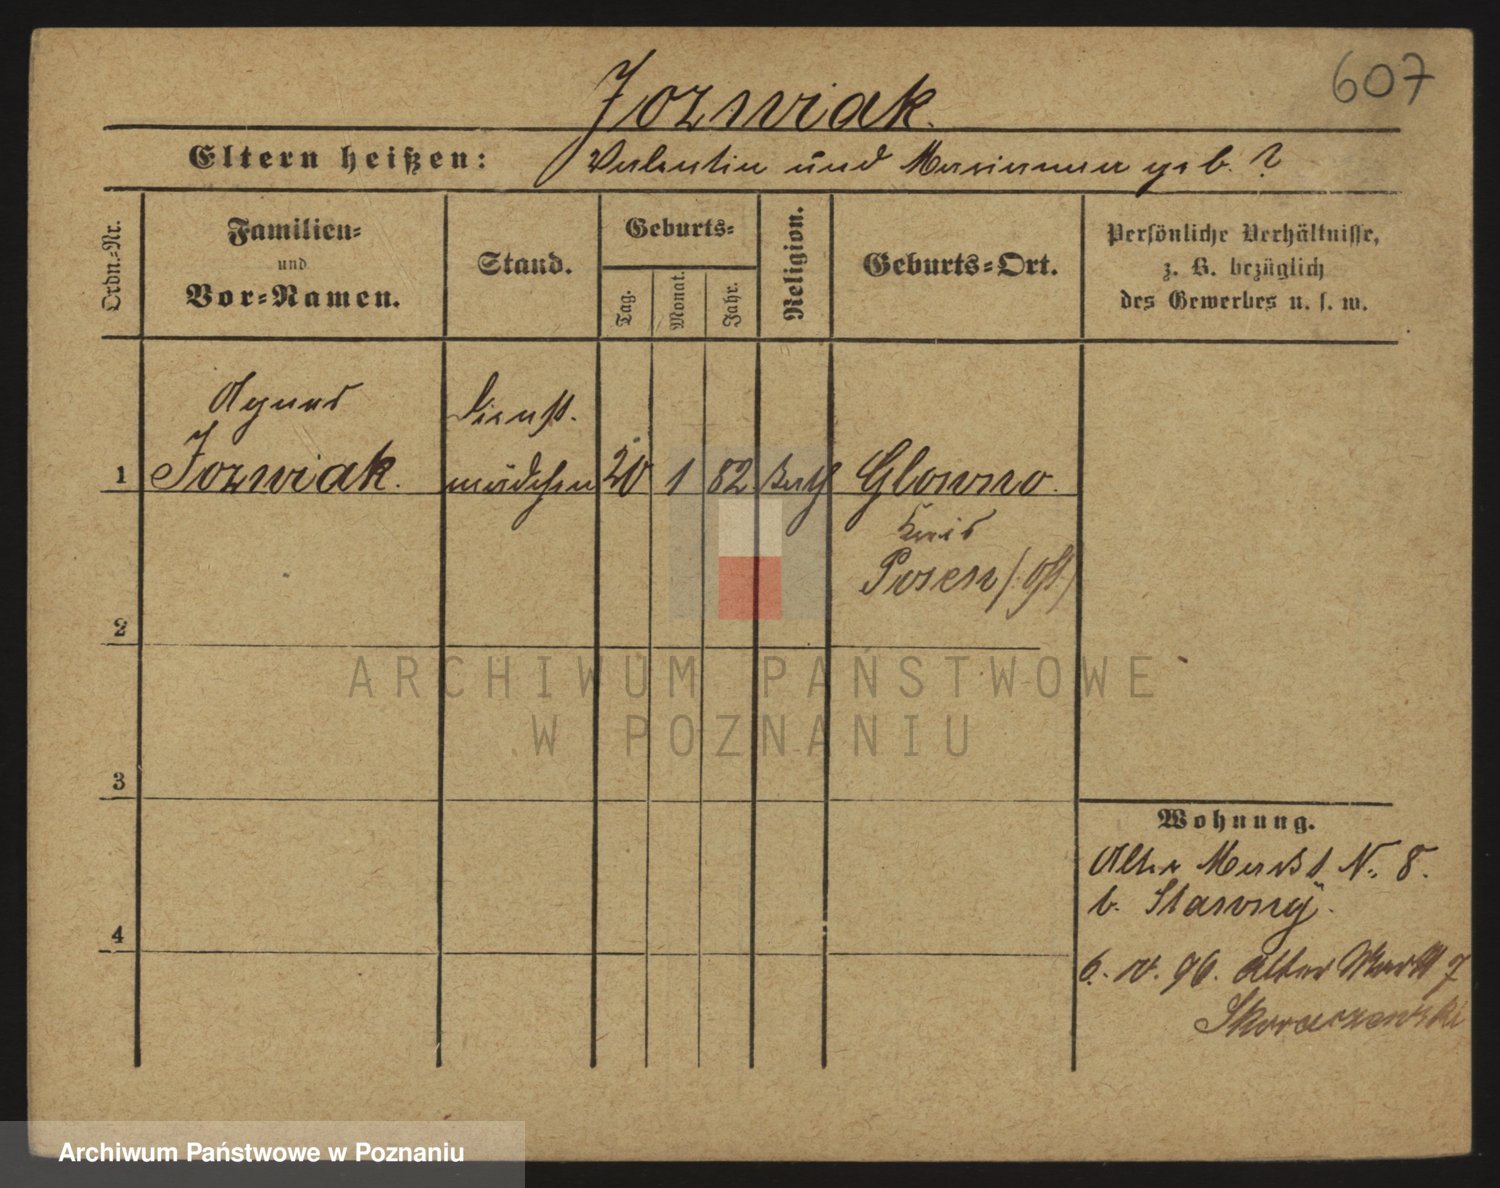 607
Jozwiak.
Eltern heißen: Valentin und Marianna geb. ?
Ordn.-Nr.
Familien-
und
Vor-Namen.
Stand.
Geburts-
Tag.
Monat.
Jahr.
Religion.
Geburts-Ort.
Persönliche Verhältnisse,
z. B. bezüglich
des Gewerbes u. s. w.
Agnes Dienst.
1 Jozwiak. mädchen 20 1 82 kath Glowno.
Kreis
Posen /. Ost /
2
3
4
Wohnung.
Alter Markt N. 8.
b. Slawny.
6. IV. 96. Alter Markt 7
Skoraczewski
ARCHIWUM PAŃSTWOWE
W POZNANIU
Archiwum Państwowe w Poznaniu